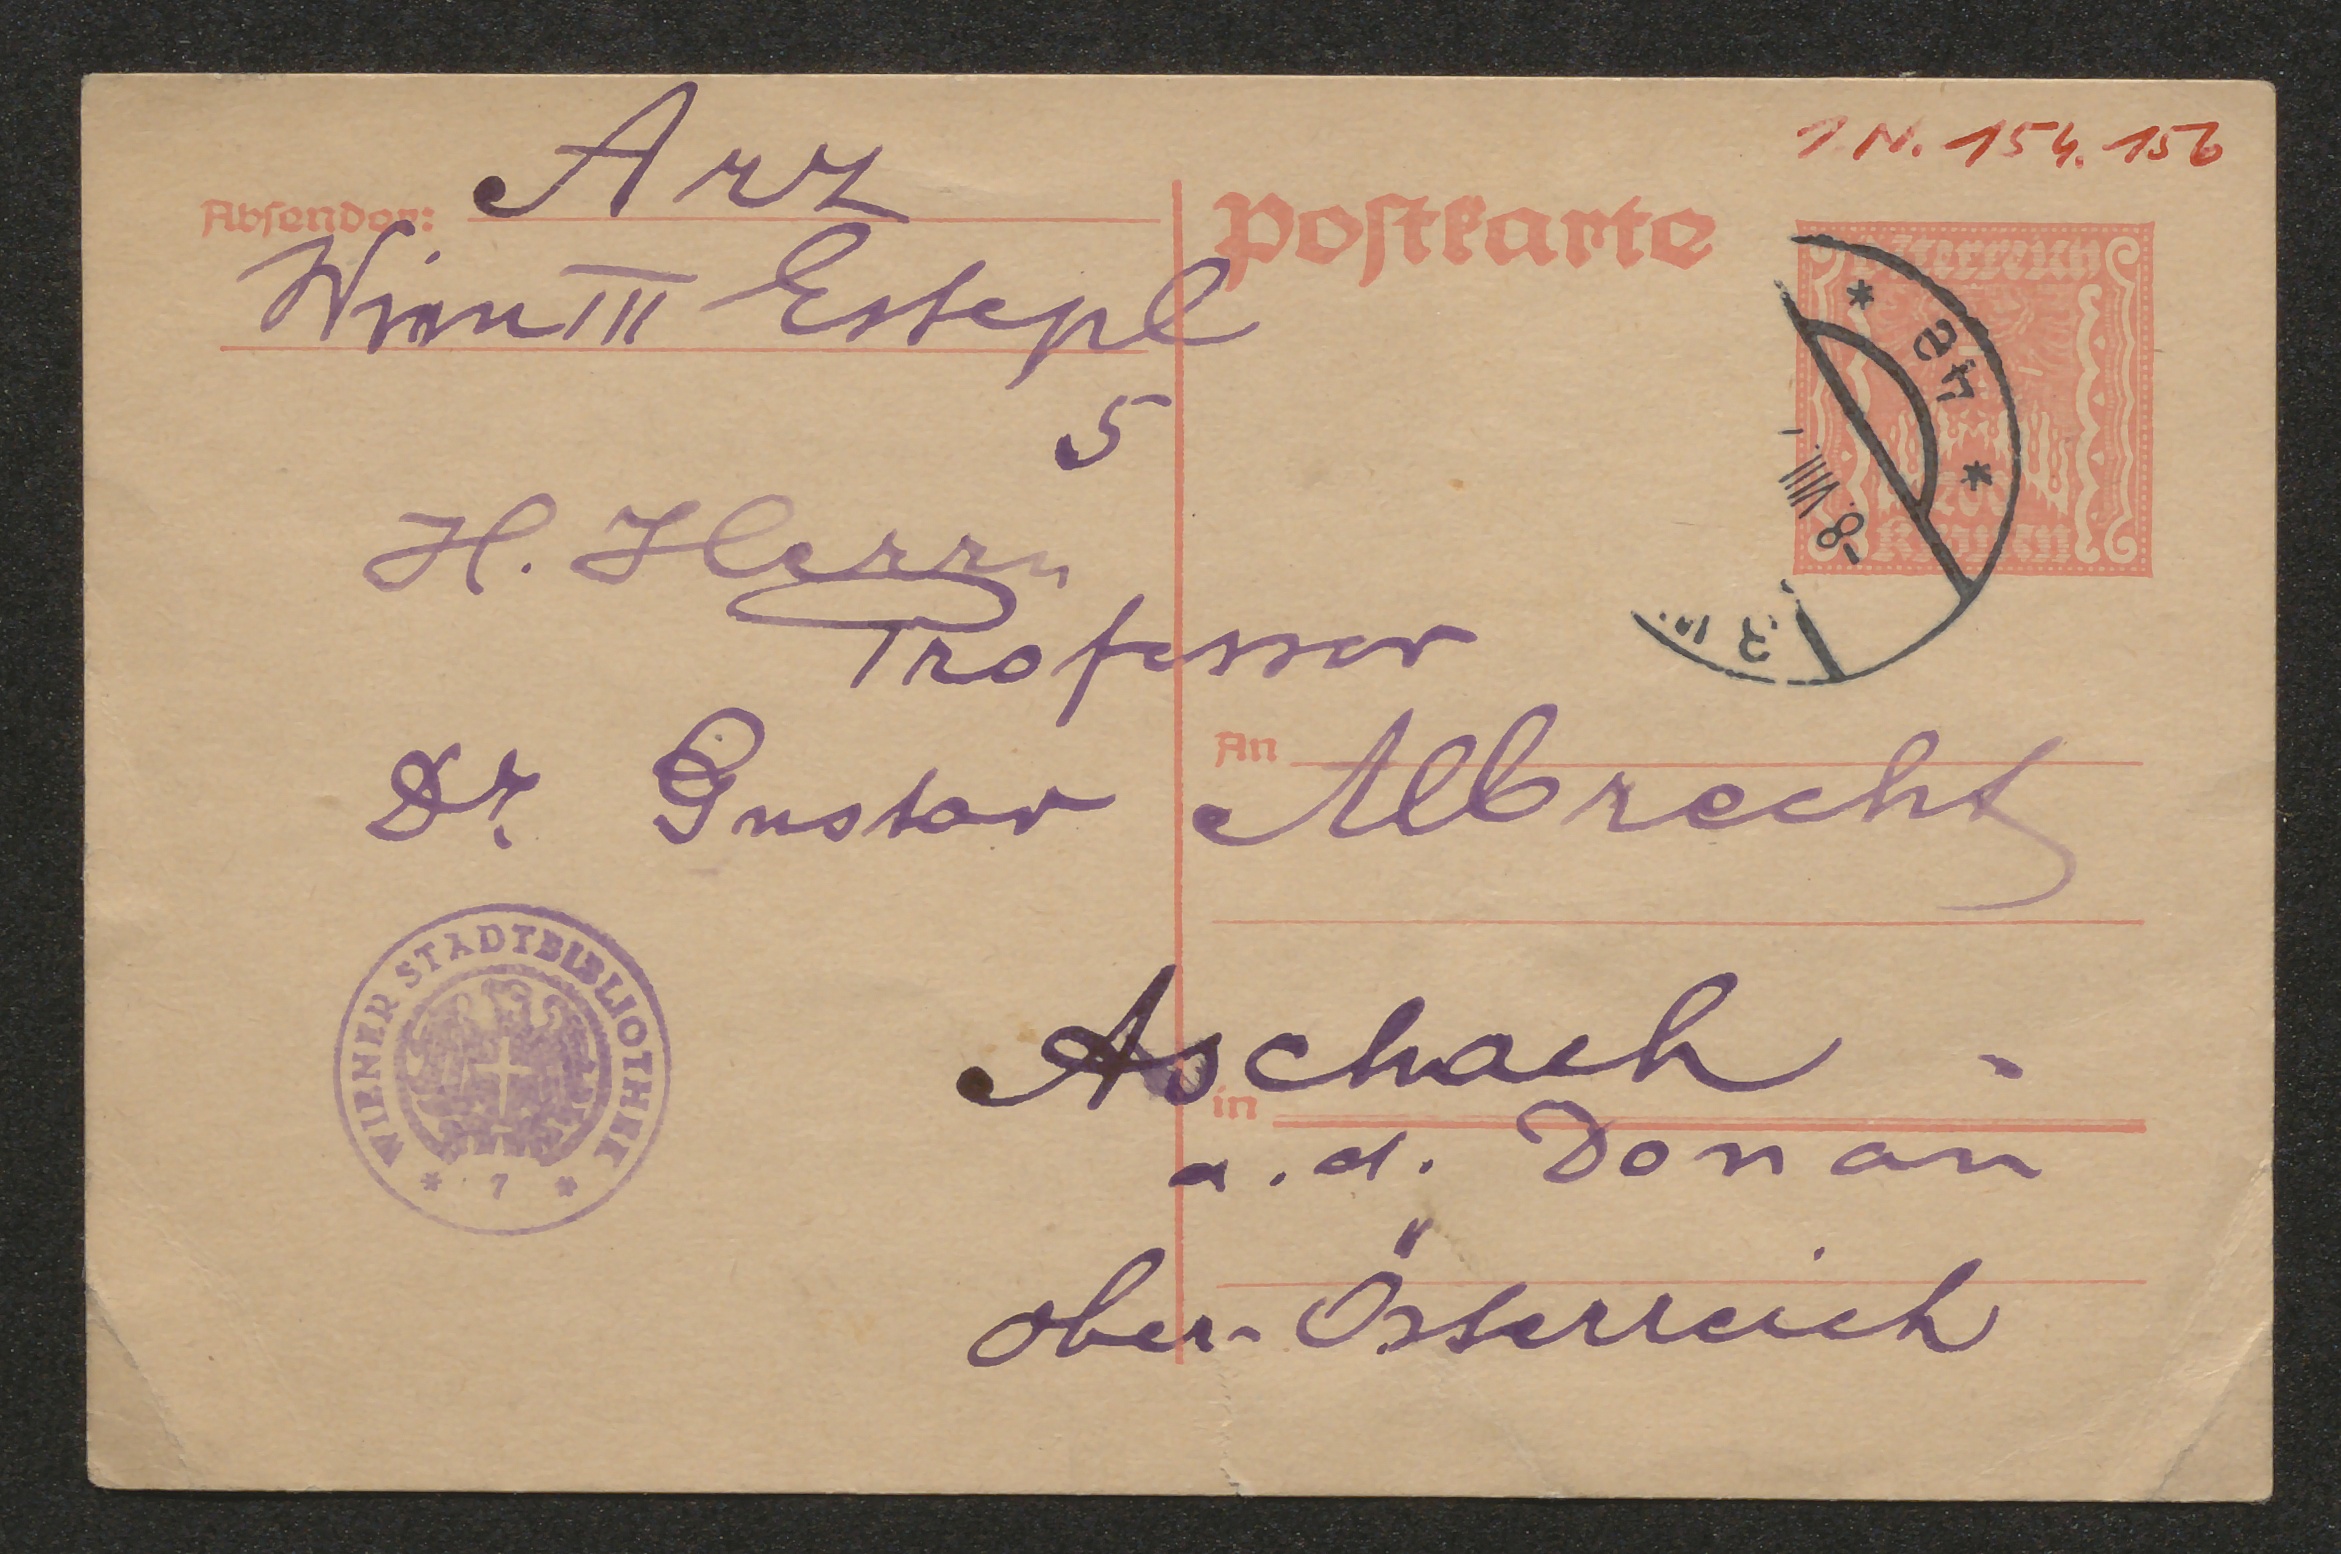 I.N. 154.156
Absender: Arz
Wien III Estepl
5
Postkarte
Österreich
200
Kronen
8. VIII.
H. Herrn
Professor
An
Dr. Gustav Albrecht
WIENER STADTBIBLIOTHEK
* 7 *
in Aschach -
a. d. Donau
Ober-Österreich